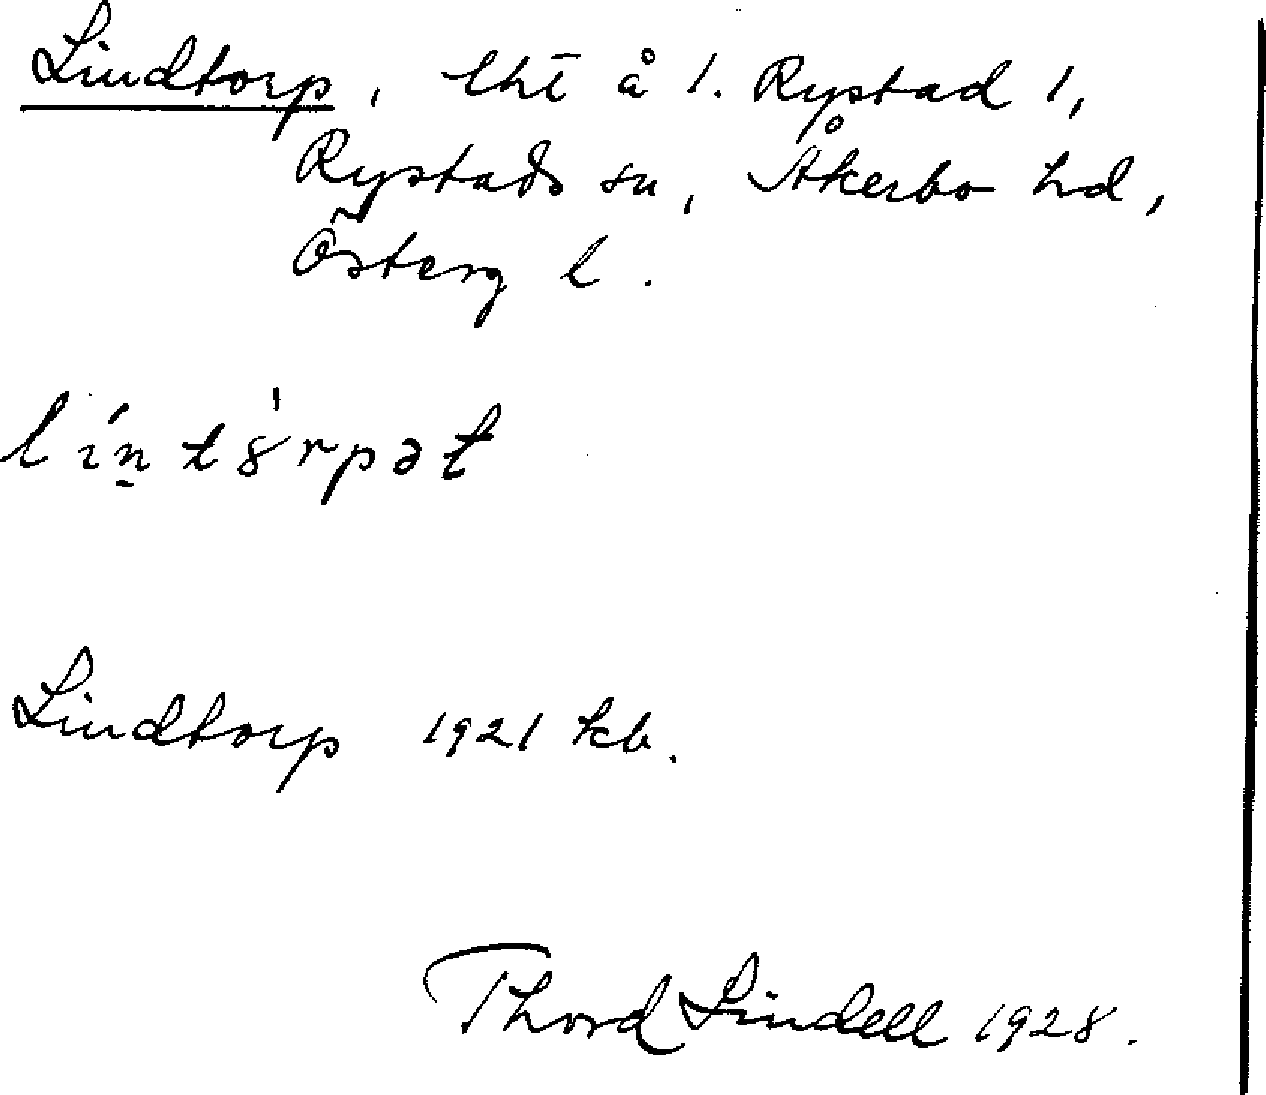 Lindtorp, lht å 1. Rystad 1,
Rystads sn, Åkerbo hd,
Österg l.
lín̠t8̍rpət
Lindtorp 1921 kb.
Thord Lindell 1928.